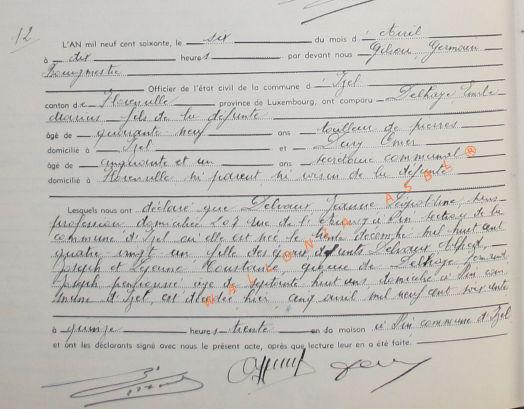 12
L'AN mil neuf cent soixante, le six du mois d' Avril
à dix heures par devant nous Gilson, Germain
Bourgmestre
Officier de l'état civil de la commune d' Izel
canton de Florenville province de Luxembourg, ont comparu Delhaye, Emile
Marius fils de la défunte
âgé de quarante neuf ans tailleur de pierres
domicilié à Izel et Dury Omer
âgé de cinquante et un ans secrétaire communal
domicilié à Florenville ni parent ni voisin de la défunte
Lesquels nous ont déclaré que Delvaux Jeanne Léopoldine, sans
profession domiciliée 207 rue de l' à Pin section de la
commune d'Izel où elle est née le trente décembre mil huit cent
quatre vingt un fille des époux défunts Delvaux Alphert,
Joseph et Lejeune Constance, épouse de Delhaye
Joseph pensionné âgé de septante huit ans domicilié à Pin com
mune d'Izel, est décédée hier, cinq avril mil neuf cent soixante
à quinze heures trente en sa maison à Pin commune d'Izel
et ont les déclarants signé avec nous le présent acte, après que lecture leur en a été faite.